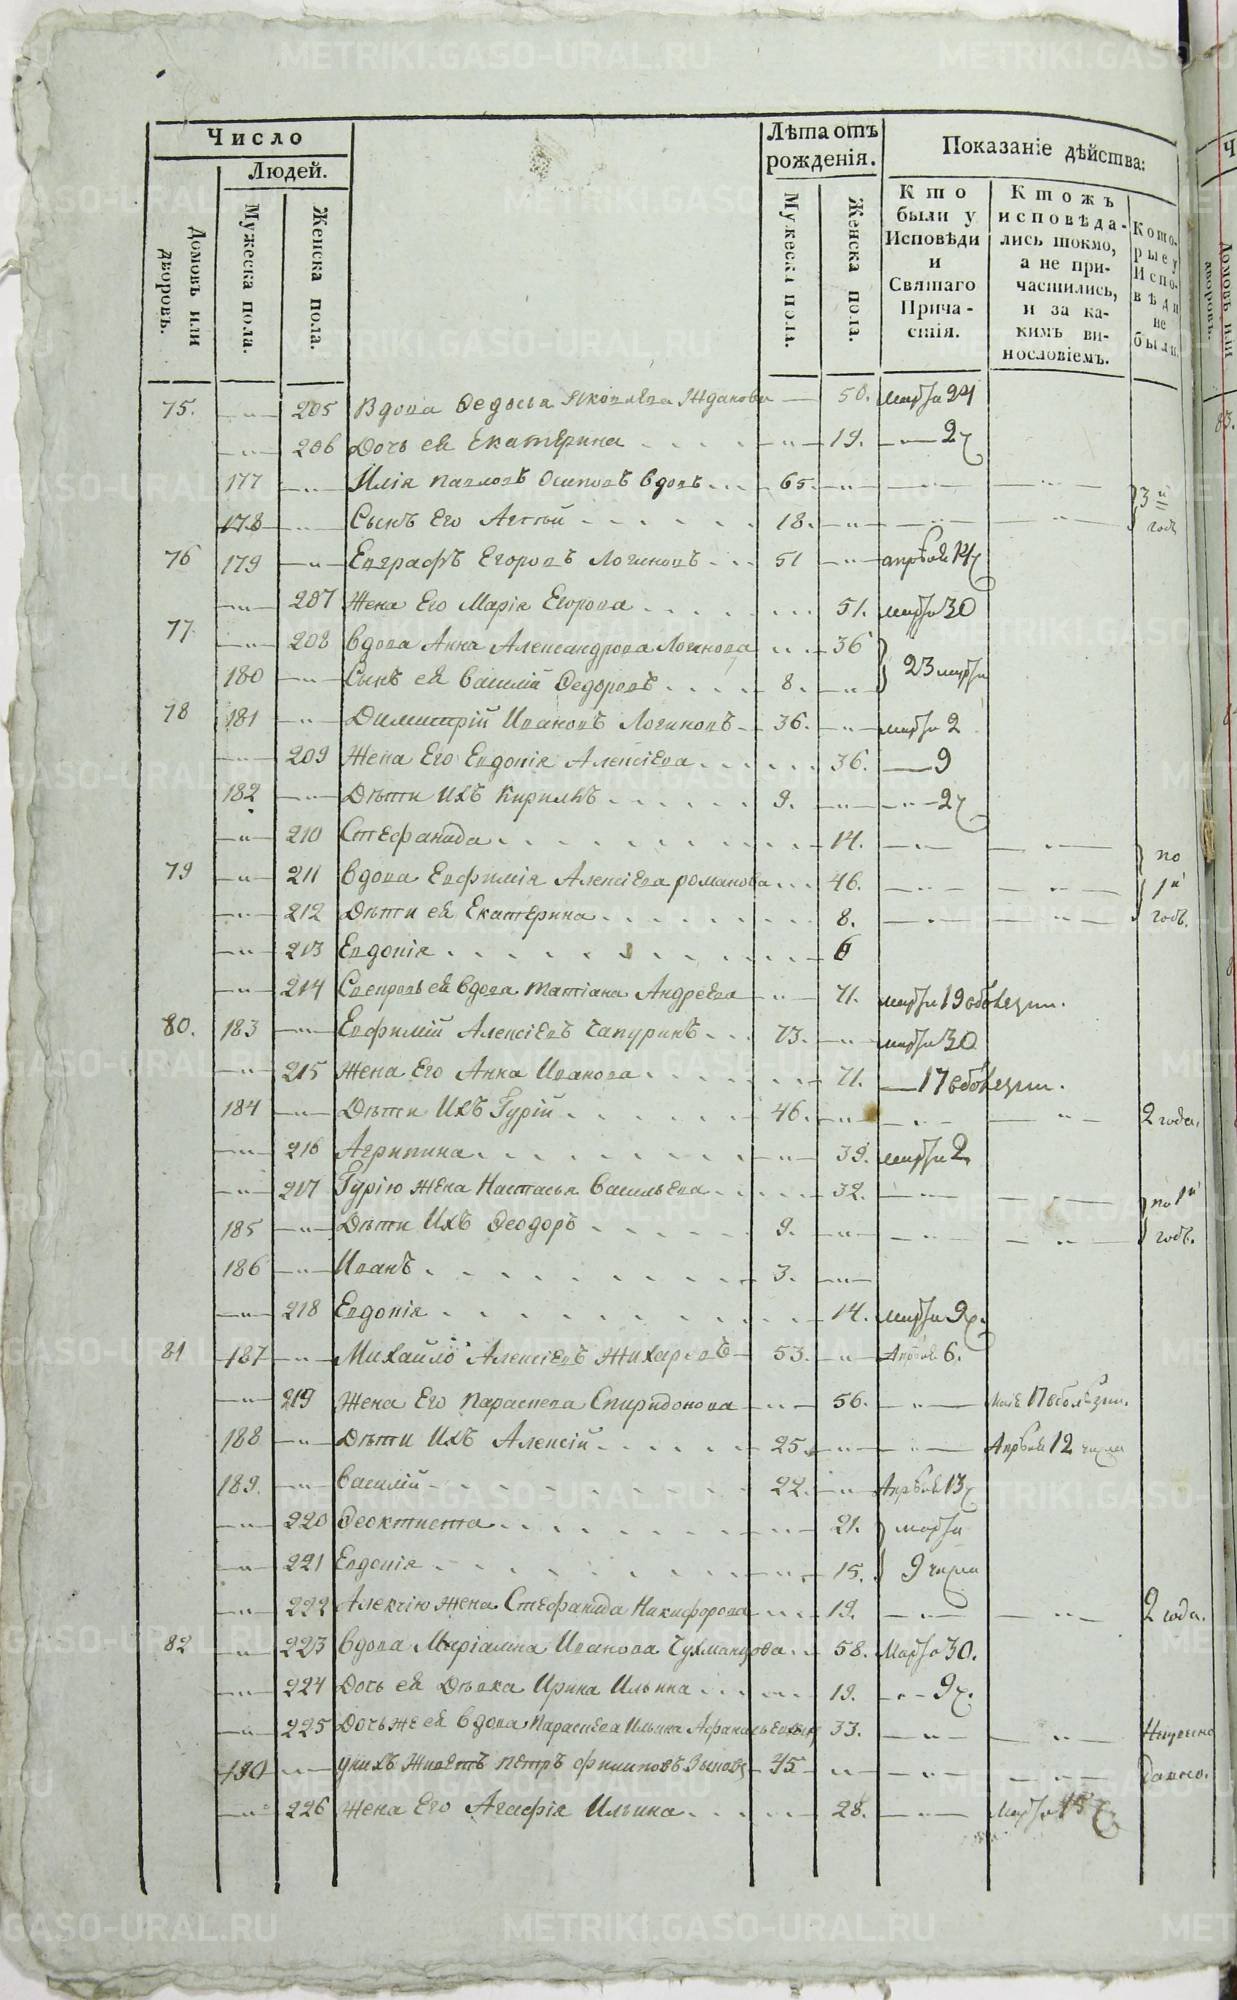 Число
Людей.
Домовъ или дворовъ.
Мужеска пола.
Женска пола.
Лѣта отъ рожденія.
Мужеска пола.
Женска пола.
Показаніе дѣйства:
Кто были у Исповѣди и Святаго Прича-стія.
Ктожъ исповѣда-лись токмо, а не при-частились, и за ка-кимъ ви-нословіемъ.
Кото-рые у Испо-вѣди не были.
75. —"— 205 Вдова Федосья Яковлева Жданова — 50. марта 24
—"— 206 Дочь ея Екатерина —"— 19. —"— 24
177 —"— Илія Павловъ Осиповъ вдовъ 65. —"— —"— —"— 3й
178 —"— Сынъ Его 18. —"— —"— —"— годъ
76 179 —"— Евграфъ Егоровъ Логиновъ 51 —"— апрѣля 14
—"— 207 Жена Его Марія Егорова 51. марта 30
77 —"— 208 Вдова Анна Александрова Логинова 36
180 —"— Сынъ ея Василій Федоровъ 8. —"— 23 марта
78 181 —"— Димитрій Ивановъ Логиновъ 36. —"— марта 2
—"— 209 Жена Его Евдокія Алексіева 36. — 9
182 —"— Дѣти Ихъ Кирилъ 9. —"— —"— 2
—"— 210 Стефанида 14. —"— —"— по
79 —"— 211 Вдова Евфимія Алексіева Романова 46. —"— —"— 1й
—"— 212 Дѣти ея Екатерина 8. —"— —"— годъ.
—"— 213 Евдокія 6
—"— 214 Свекровь ея вдова Татіана Андреева —"— 71. марта 19 вболезни.
80. 183 —"— Евфимій Алексіевъ Чапуринъ 73. —"— марта 30
—"— 215 Жена Его Анна Иванова 71. — 17 вболезни.
184 —"— Дѣти Ихъ Гурій 46. —"— —"— —"— 2 года.
—"— 216 Агрипина —"— 39. марта 2
—"— 217 Гурію жена Настасья Васильева 32. —"— —"— по 1й
185 —"— Дѣти Ихъ Феодоръ 9. —"— —"— —"— годъ.
186 —"— Иванъ 3. —"—
—"— 218 Евдокія 14. марта 9
81 187 —"— Михайло Алексіевъ Жихаревъ 53. —"— Апрѣля 6.
—"— 219 Жена Его Параскева Спиридонова —"— 56. —"— 17 вболѣзни.
188 —"— Дѣти Ихъ Алексій 25. —"— —"— Апрѣля 12 числа
189. —"— Василій 22. —"— Апрѣля 13
—"— 220 Феоктиста —"— 21. марта
—"— 221 Евдокія —"— 15. 9 числа
—"— 222 Алексію жена Стефанида Никифорова 19. —"— —"— 2 года.
82 —"— 223 Вдова Маріамна Иванова Чухманцова 58. Марта 30.
—"— 224 Дочь ея Дѣвка Ирина Ильина —"— 19. —"— 9
—"— 225 Дочь же ея вдова Параскева Ильина 33. —"— —"—
190 —"— Унихъ Живетъ Петръ Филиповъ Зыковъ 45 —"— —"— —"— давно.
—"— 226 Жена Его Агафія Ильина 28. —"— марта 15